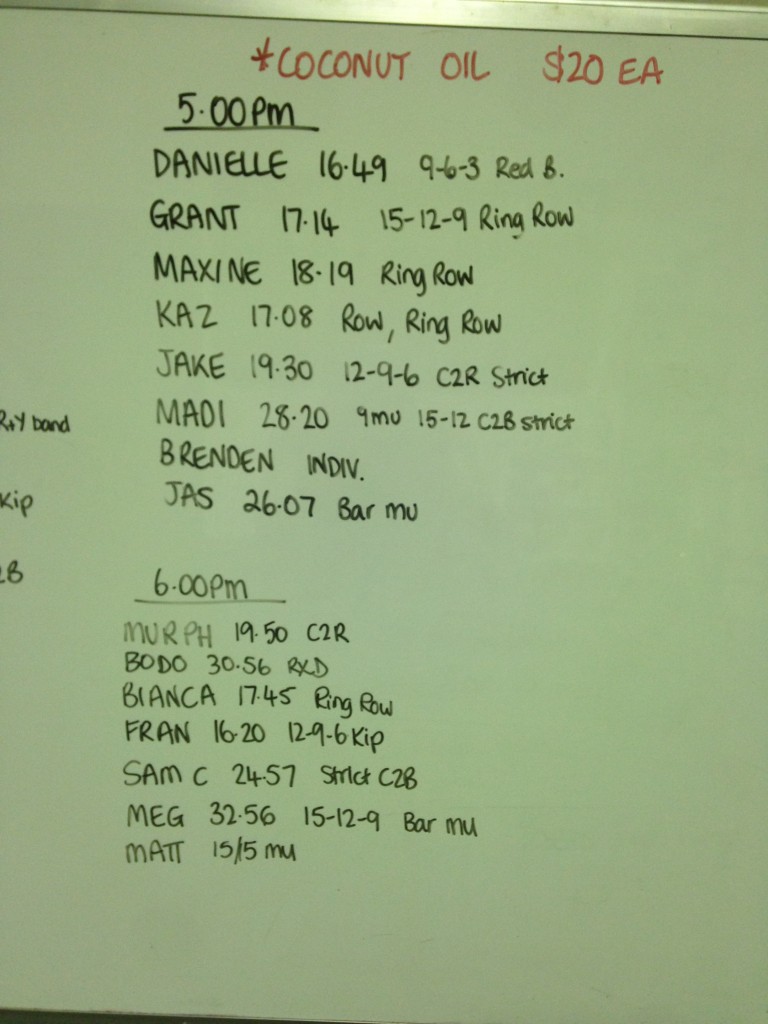 *COCONUT OIL $20 EA
5.00pm
DANIELLE 16.49 9-6-3 Red B.
GRANT 17.14 15-12-9 Ring Row
MAXINE 18.19 Ring Row
KAZ 17.08 Row, Ring Row
JAKE 19.30 12-9-6 C2R Strict
MADI 28.20 9mu 15-12 C2B strict
R+Y band
BRENDEN INDIV.
JAS 26.07 Bar mu
Kip
2B
6.00pm
MURPH 19.50 C2R
BODO 30.56 RXD
BIANCA 17.45 Ring Row
FRAN 16.20 12-9-6 Kip
SAM C 24.57 Strict C2B
MEG 32.56 15-12-9 Bar mu
MATT 15/5 mu